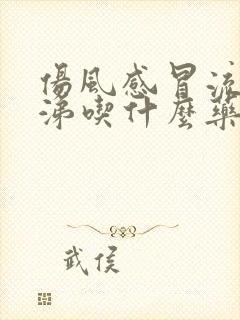 傷風感冒流
涕喫什麼藥
武侯